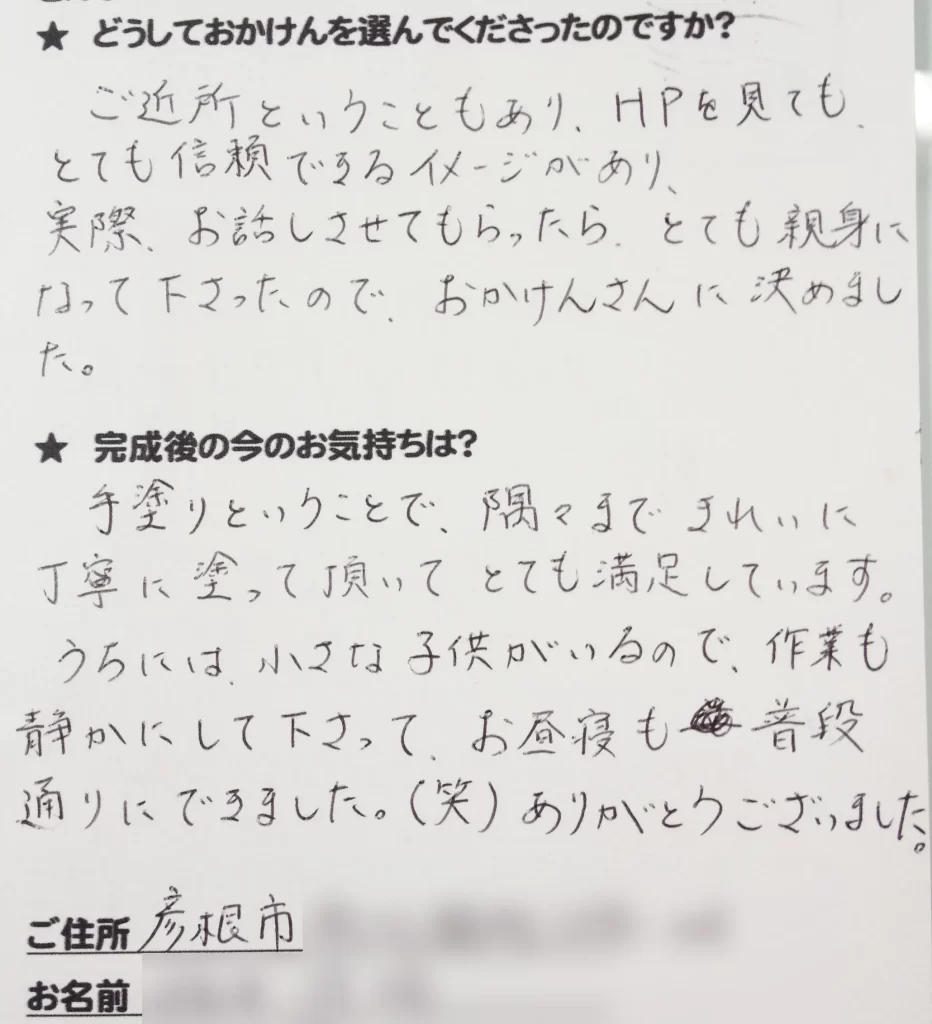 ★ どうしておかけんを選んでくださったのですか?
ご近所ということもあり、HPを見ても、
とても信頼できるイメージがあり、
実際、お話しさせてもらったら、とても親身に
なって下さったので、おかけんさんに決めまし
た。
★ 完成後の今のお気持ちは?
手塗りということで、隅々まできれいに
丁寧に塗って頂いてとても満足しています。
うちには、小さな子供がいるので、作業も
静かにして下さって、お昼寝も普段
通りにできました。(笑)ありがとうございました。
ご住所 彦根市
お名前